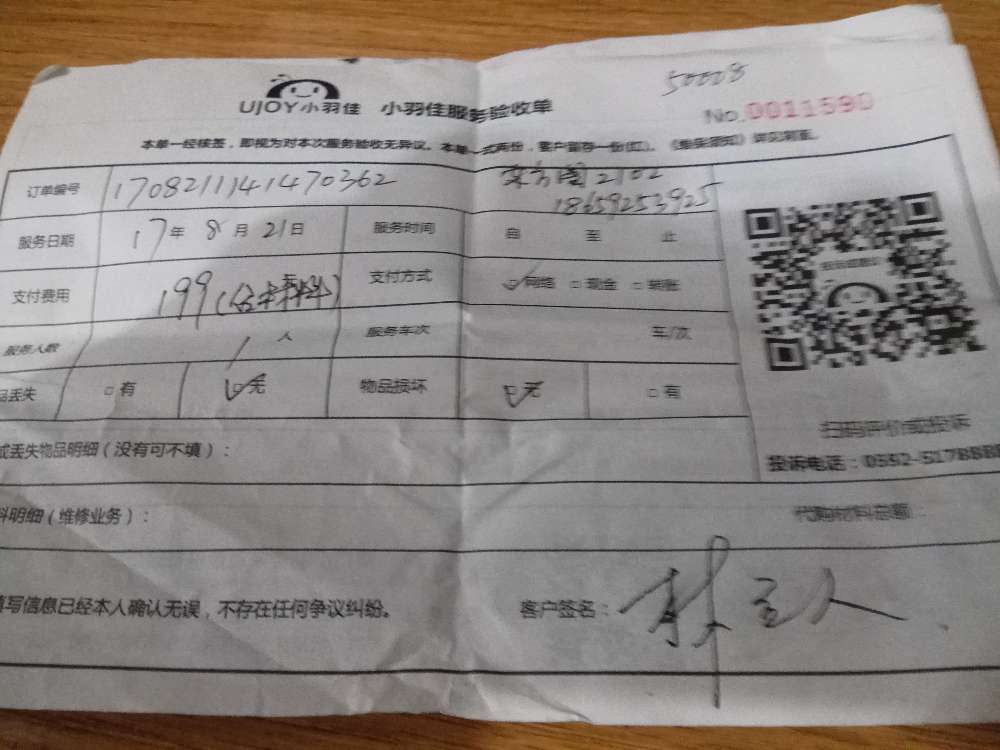 50008
UJOY小羽佳 小羽佳服务验收单 No.0011590
本单一经核签，即视为对本次服务验收无异议。本单一式两份，客户留存一份(红)。《维保须知》详见背面。
订单编号 1708211141470362 东方阁2102
18659253925
服务日期 17年8月21日 服务时间 自 至 止
支付费用 199 支付方式 网络 □现金 □转账
服务人数 1人 服务车次 车/次
品丢失 □有 无 物品损坏 无 □有
或丢失物品明细（没有可不填）：
扫码评价或投诉
投诉电话：0592-5178888
料明细（维修业务）： 代购材料总额：
填写信息已经本人确认无误，不存在任何争议纠纷。 客户签名：林